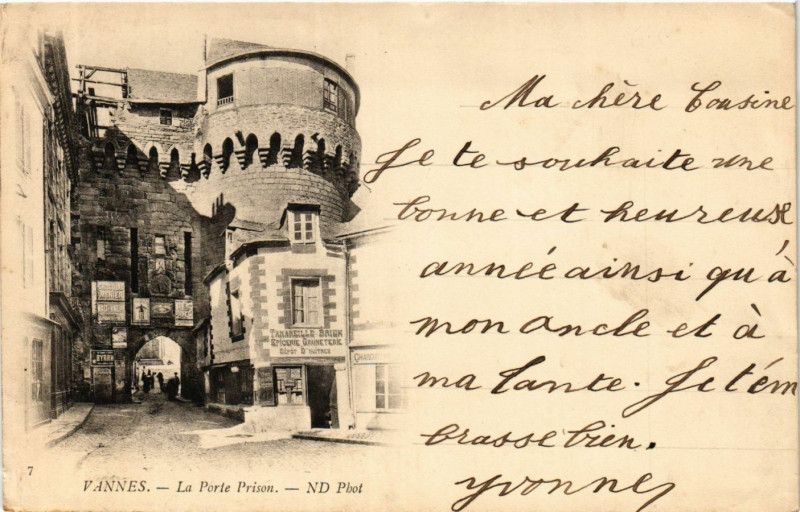 Ma chère Cousine
Je te souhaite une
bonne et heureuse
année ainsi qu'à
mon oncle et à
ma tante. Je t'em
brasse bien.
Yvonne
TANAREILLE-BRIEN
EPICERIE GRAINETERIE
DÉPÔT D'HUITRES
BYRRH
7
VANNES. — La Porte Prison. — ND Phot